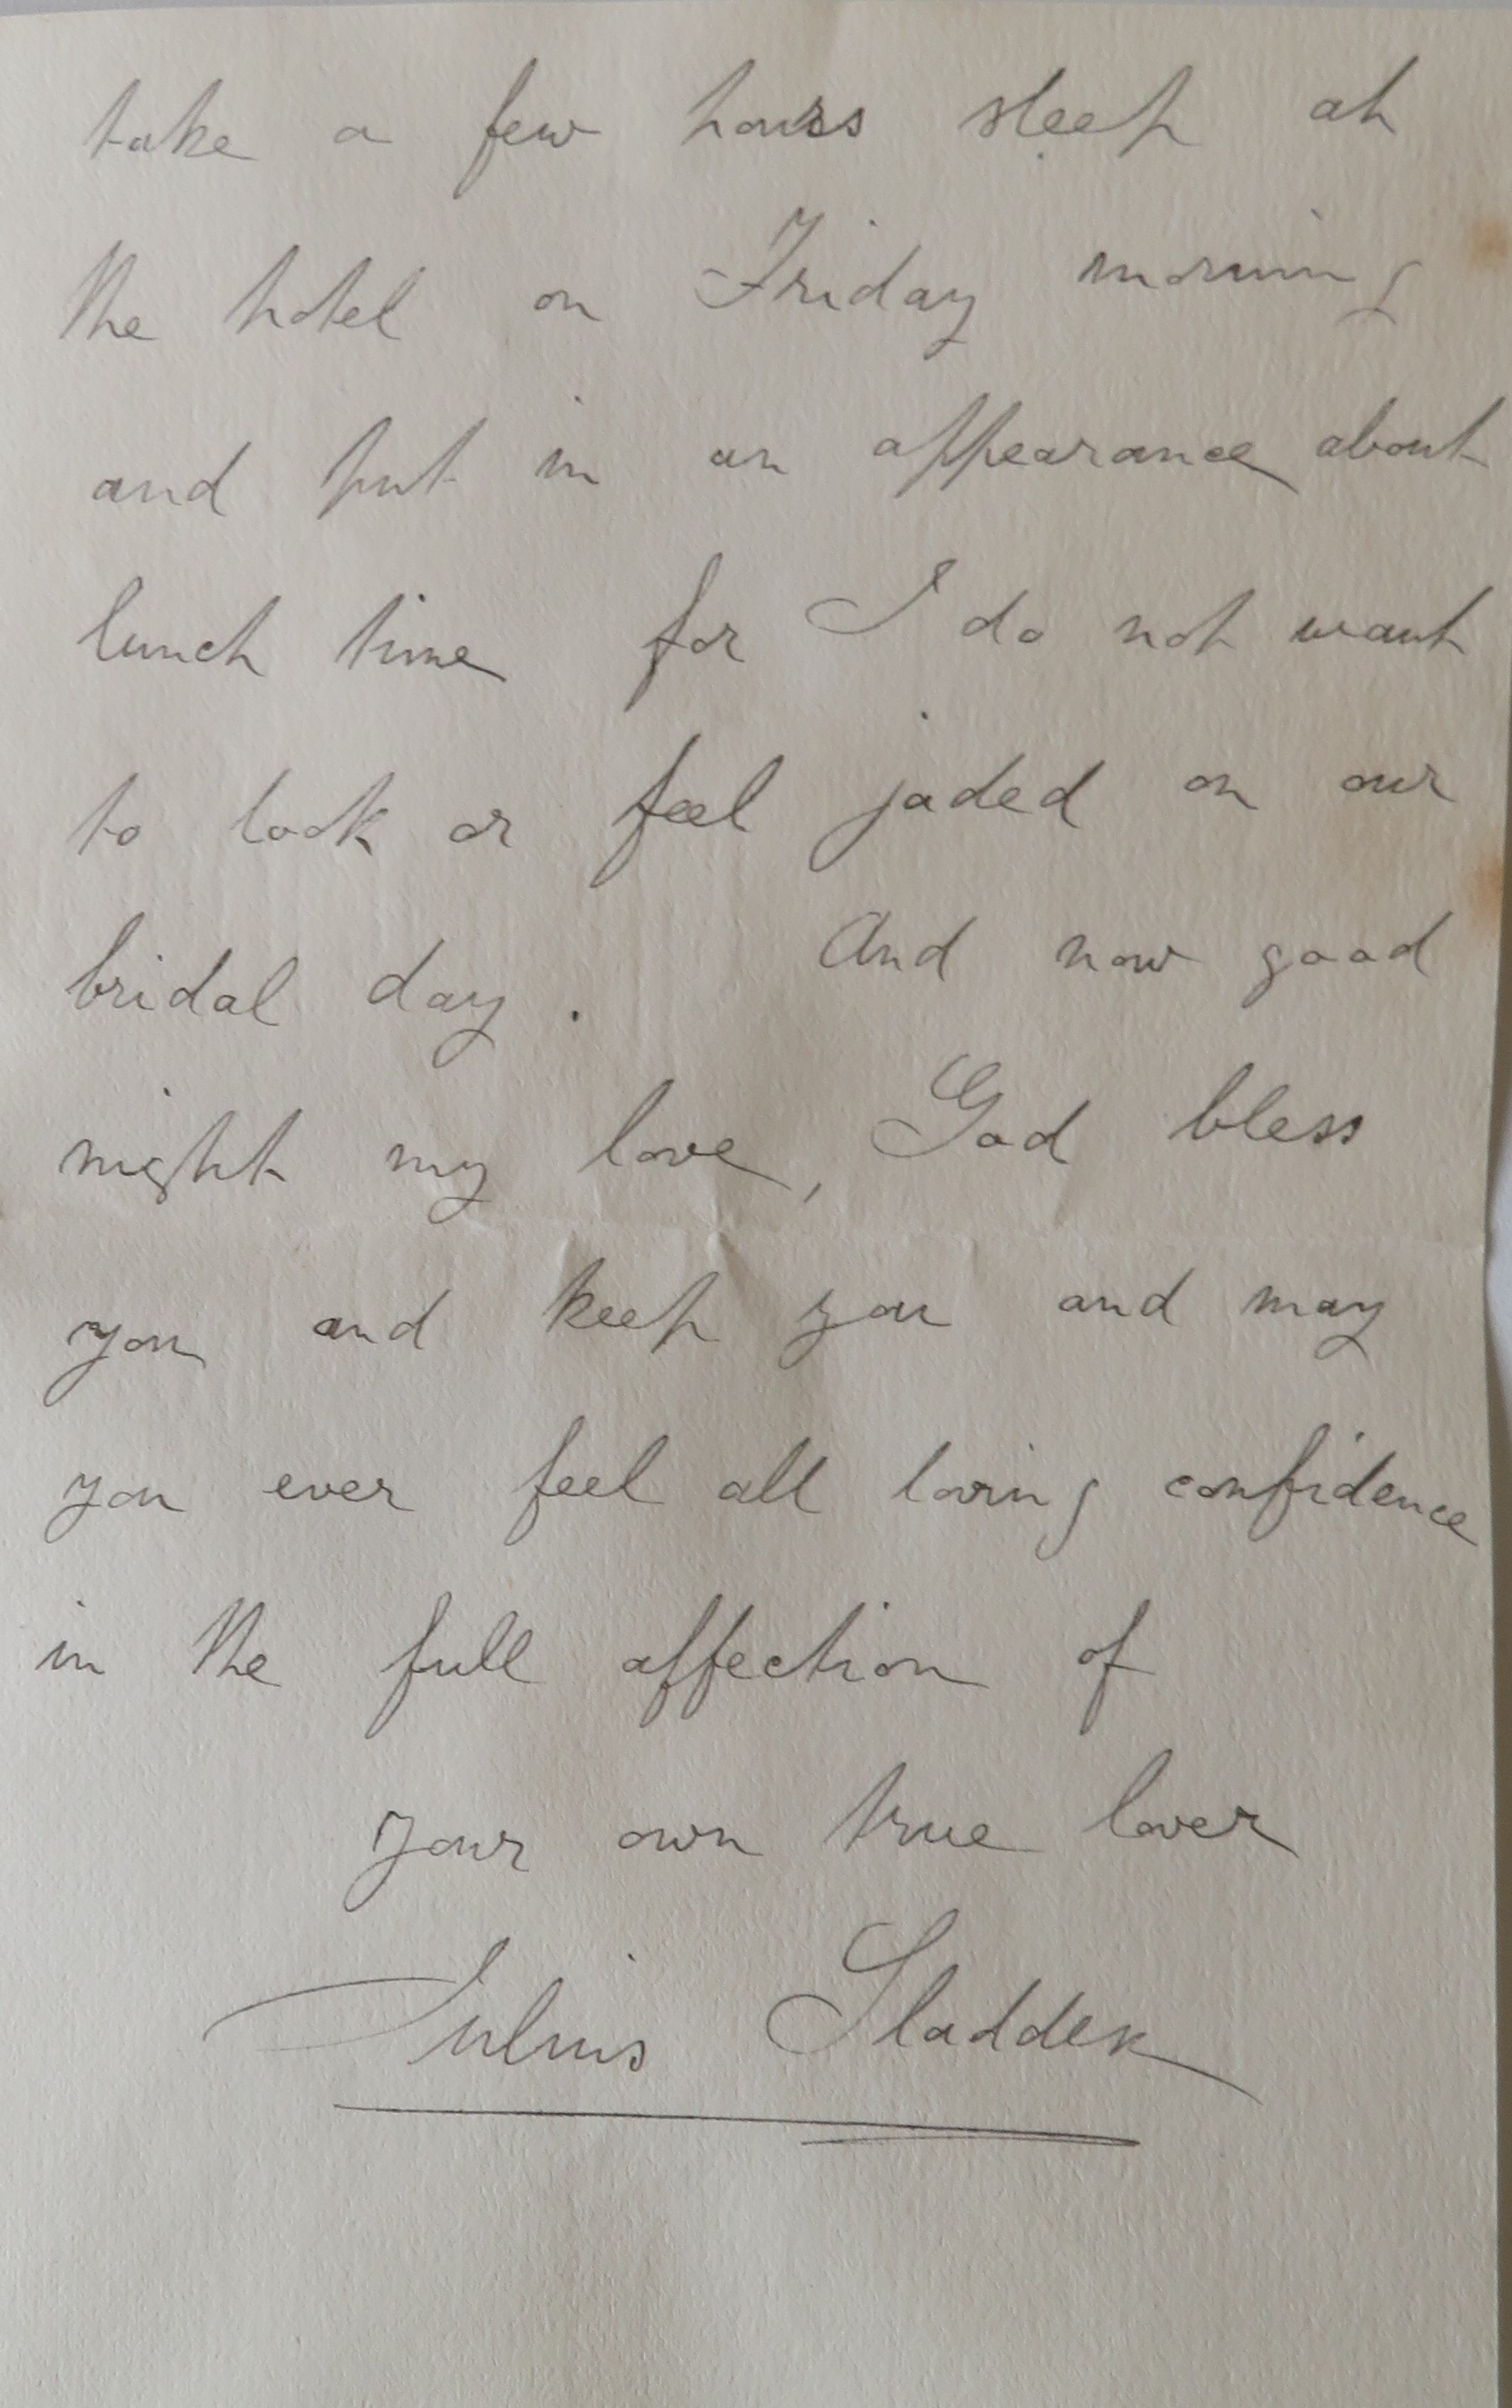 take a few hours sleep at
the hotel on Friday morning
and put in an appearance about
lunch time for I do not want
to look or feel jaded on our
bridal day. And now good
night my love, God bless
you and keep you and may
you ever feel all loving confidence
in the full affection of
your own true lover
Julius Sladden